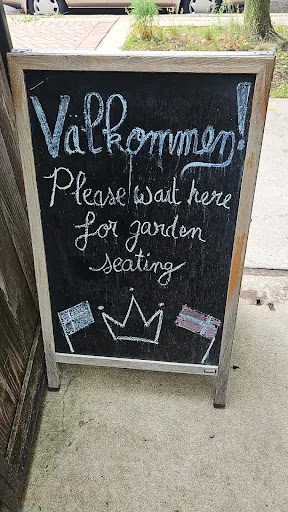 Välkommen!
Please wait here
for garden
seating